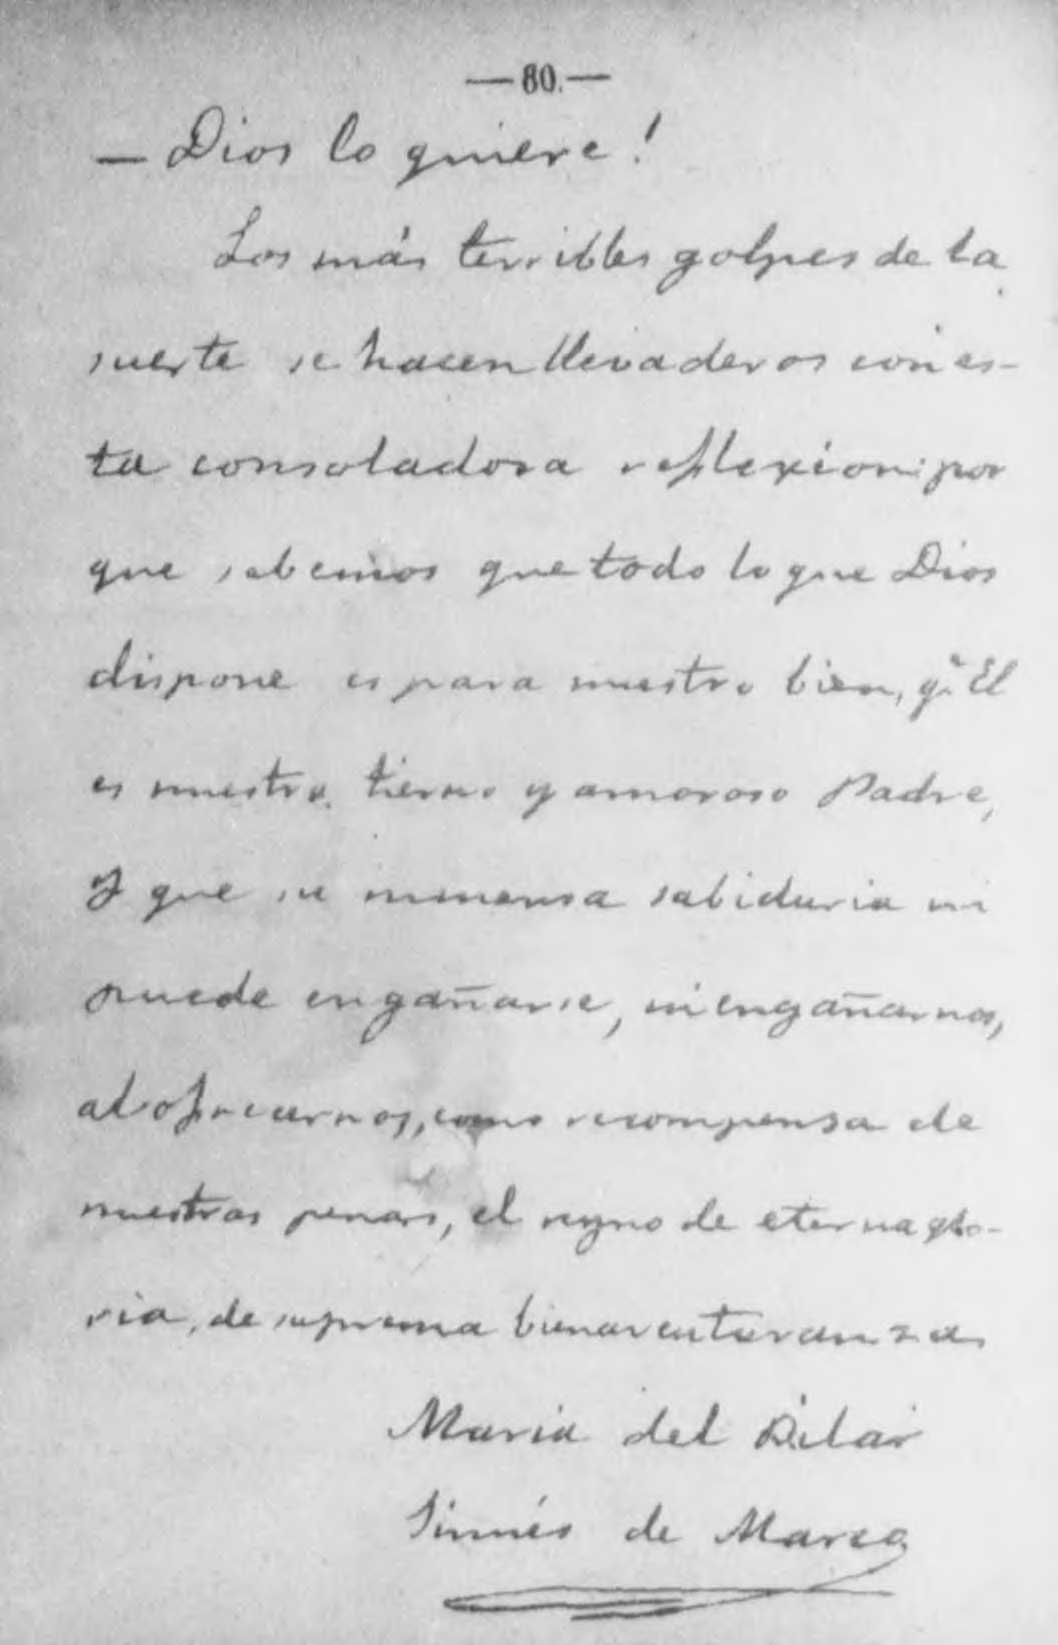 — 80. —
— Dios lo quiere!
Los más terribles golpes de la
suerte se hacen llevaderos con es-
ta consoladora reflexion: por
que sabemos que todo lo que Dios
dispone es para nuestro bien, q.e El
es nuestro tierno y amoroso Padre,
y que su inmensa sabiduria ni
puede engañarse, ni engañarnos,
al ofrecernos, como recompensa de
nuestras penas, el reyno de eterna glo-
ria, de suprema bienaventuranza.
Maria del Pilar
Sinués de Marco